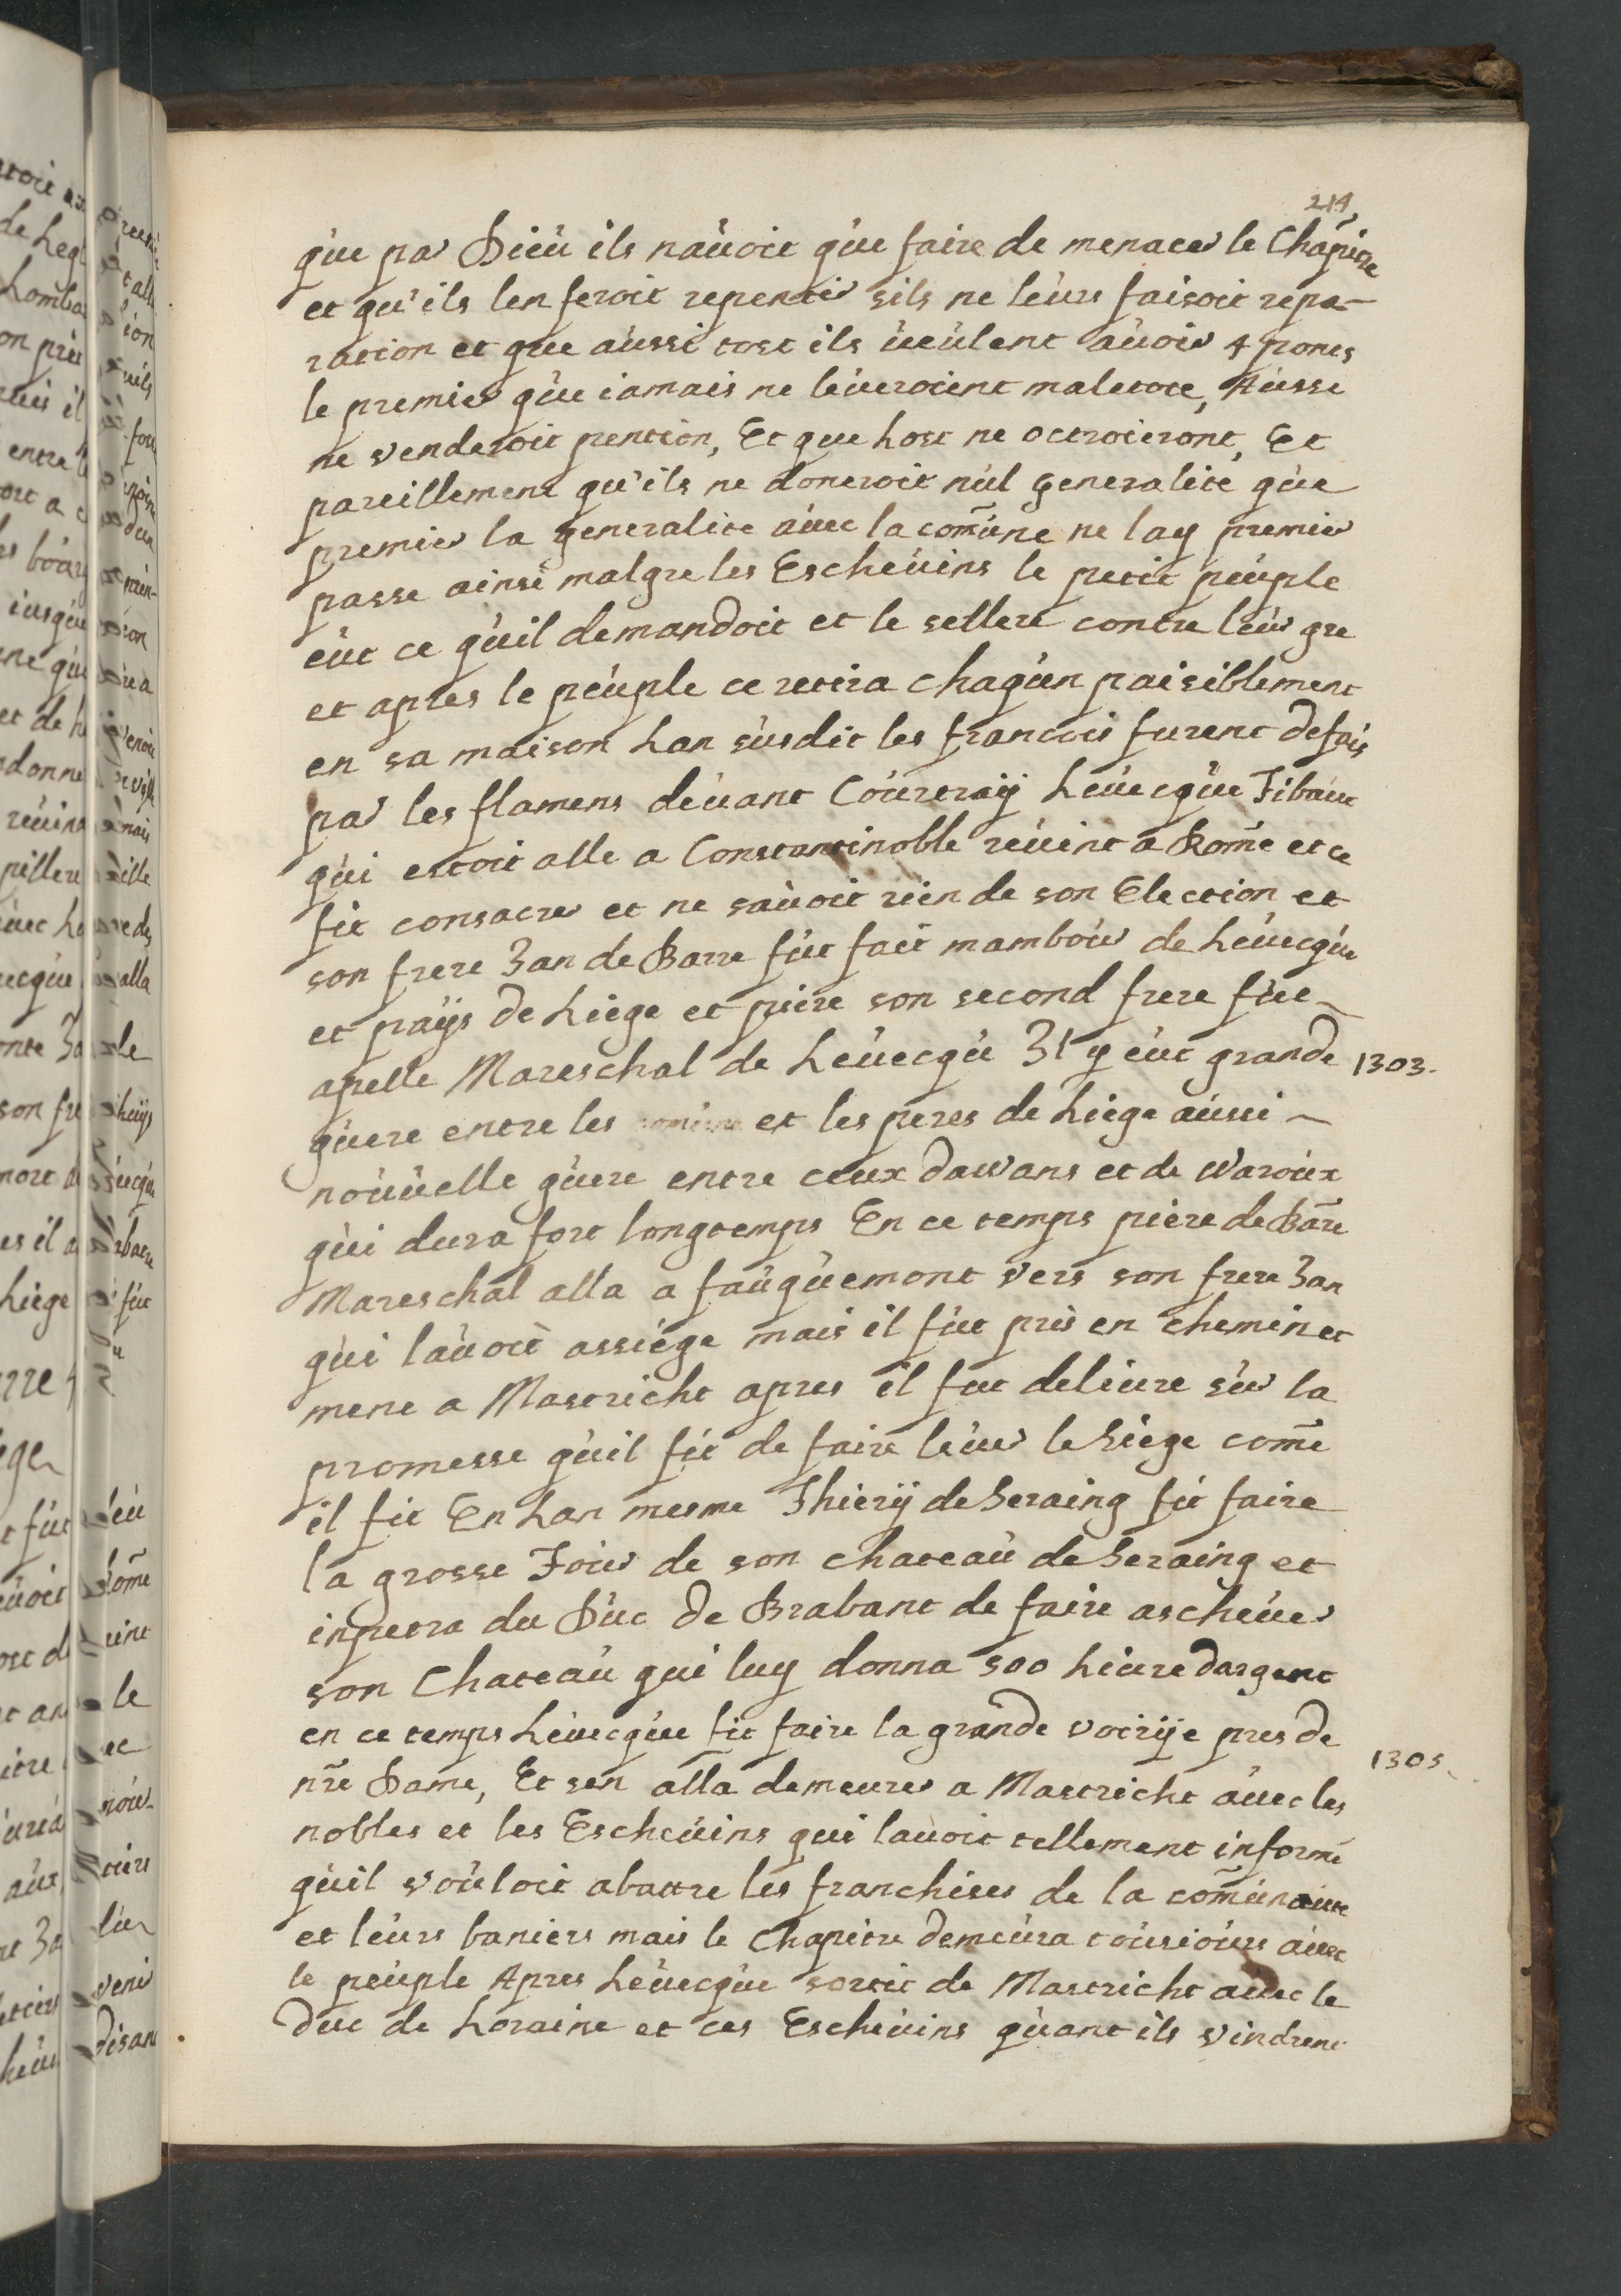 214
que par Dieu ils navoit que faire de menacer le Chapitre
et qu'ils len feroit repentir sils ne leurs faisoit repa-
ration et que aussi tost ils veulent avoir 4 pones
le premier que iamais ne leveroient maletote, Ausse
ne venderoit pention, Et que host ne octroieront, Et
pareillement qu'ils ne doneroit nul generalite que
premier la generalite avec la com̄une ne lay premier
passe ainsi malgre les Eschevins le petit peuple
eut ce quil demandoit et le sellere contre leur gre
et apres le peuple ce retira chaqun paisiblement
en sa maison Lan susdit les francois furent defais
par les flamens devant Courtraÿ Levecque Tibaut
qui estoit alle a Constantinoble revint a Rom̄e et ce
fit consacrer et ne savoit rien de son Election et
son frere Jan de Barre fut fait mambour de Levecque
et paÿs de Liege et piere son second frere fut
apelle Mareschal de Levecqu Il y eut grande
1303.
guere entre les et les peres de Liege aussi
nouvelle guere entre ceux dawans et de waroux
qui dura fort longtemps En ce temps piere de Bar̄e
Mareschal alla a fauquemont vers son frere Jan
qui lavoit assiege mais il fut pris en chemin et
mene a Mastricht apres il fut delivre sur la
promesse quil fit de faire lever le Siege com̄e
il fit En Lan mesme Thierÿ de Seraing fit faire
la grosse Tour de son chateau de Seraing et
inpetra du Duc de Brabant de faire aschever
son Chateau qui luy donna 500 Livre dargent
en ce temps Levecque fit faire la grande voirÿe pres de
nr̄e Dame, Et sen alla demeurer a Mastricht avec les
1305
nobles et les Eschevins qui lavoit tellement informe
quil vouloit abattre les franchises de la com̄unaute
et leurs baniers mais le Chapitre demeura tousiours avec
le peuple Apres Levecque sortit de Mastricht avec le
Duc de Loraine et ces Eschevins quant ils vindrent